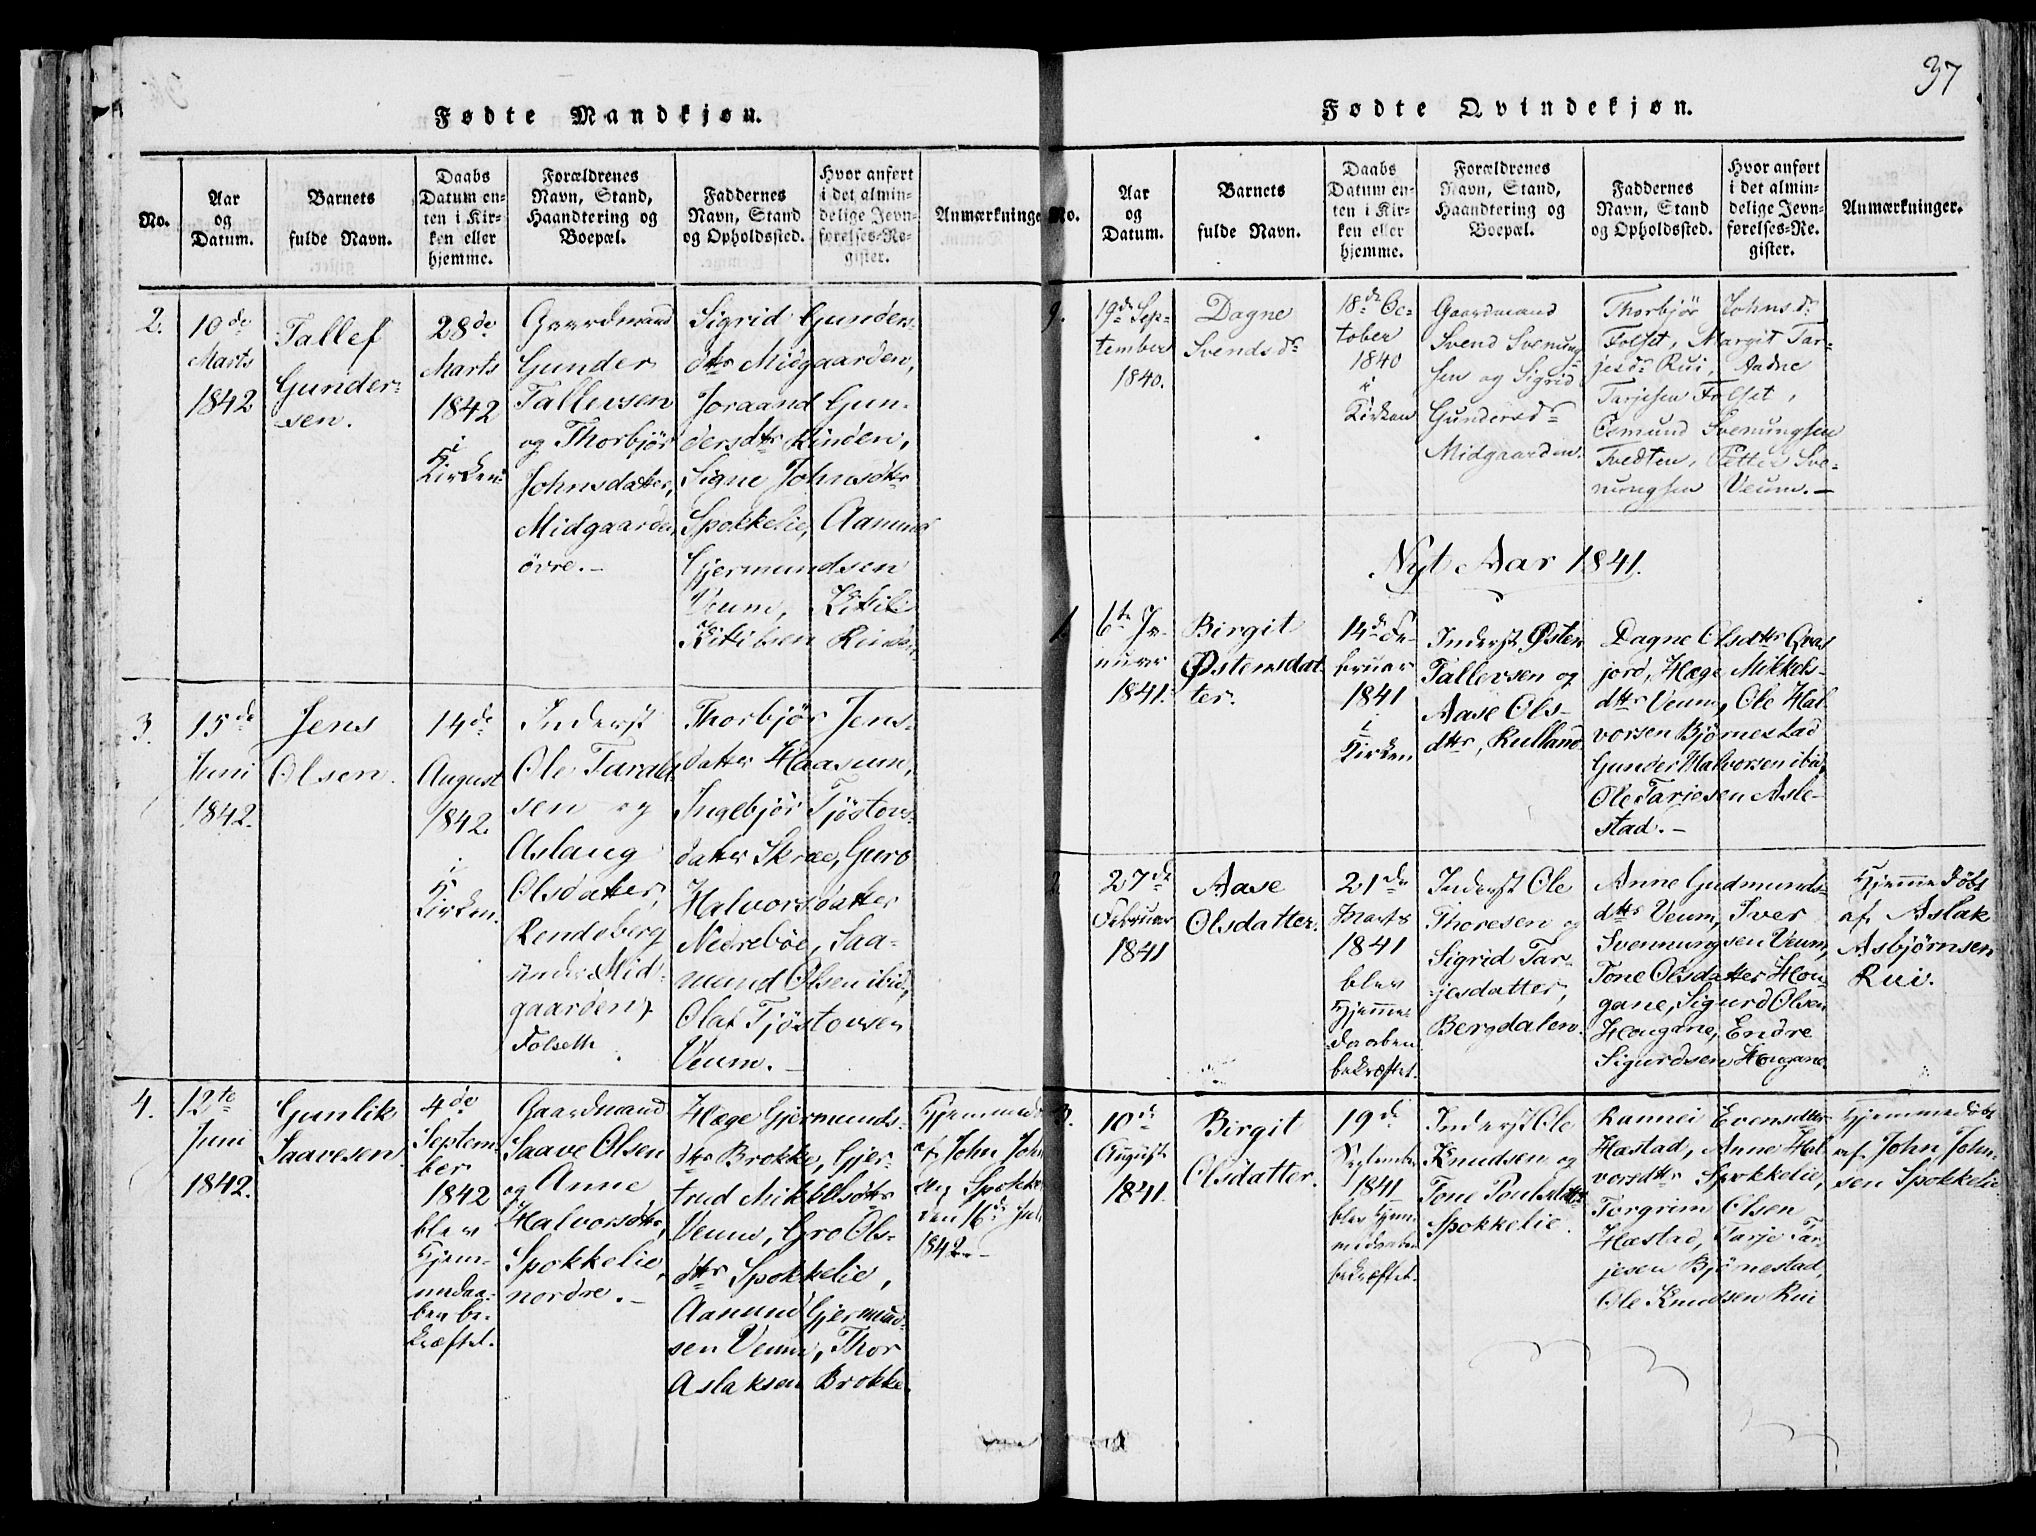 37
Fødte Mandkjøn.
No.
Aar
og
Datum.
Barnets
fulde Navn.
Daabs
Datum en-
ten i Kir-
ken eller
hjemme.
Forældrenes
Navn, Stand,
Haandtering og
Boepæl.
Faddernes
Navn, Stand
og Opholdssted.
Hvor anført
i det almin-
delige Jevn-
førelses-Re-
gister.
Anmærkninge
2.
10de
Marts
1842
Tallef
Gunder-
sen.
28de
Marts
1842
i
Kirken
Gaardmand
Gunder
Tallevsen
og Thorbjør
Johnsdatter,
Midgaarden
övre.-
Sigrid Gunders-
dttr Midgaarden,
Joraand Gun-
dersdttr Linden,
Signe Johnsdttr
Spokkelie, Aamund
Gjermundsen
Veum, Kitil
Kittilsen
3.
15de
Juni
1842.
Jens
Olsen.
14de
August
1842.
i
Kirken.
Inderst
Ole Tarald
sen og
Aslaug
Olsdatter,
Rendeberg
under Mid-
gaarden,
Folseth
Thorbjør Jens-
datter Haasum,
Ingebjör Tjöstovs-
datter Skræe, Guro
Halvorsdatter
Nedrebøe, Saa-
mund Olsen ibid,
Olaf Tjöstovsen
Veum.
4.
12te
Juni
1842.
Gunlik
Saavesen.
4de
Septem-
ber
1842
blev
Hjem-
medaa-
ben be-
kræftet.
Gaardmand
Saave Olsen
og Anne
Halvorsdttr,
Spokkelie,
nordre.-
Hæge Gjermunds-
dttr Brokke, Gjer-
trud Mikkelsdttr
Veum, Gro Ols-
dttr Spokkelie,
Aamund Gjermund-
sen Veum, Thor
Aslaksen Brokke.
Hjemmed
af John John
Spokke
den 16de Juli
1842.-
Fødte Qvindekjøn.
No.
Aar
og
Datum.
Barnets
fulde Navn.
Daabs
Datum en-
ten i Kir-
ken eller
hjemme.
Forældrenes
Navn, Stand,
Haandtering og
Boepæl.
Faddernes
Navn, Stand
og Opholdssted.
Hvor anført
i det almin-
delige Jevn-
førelses-Re-
gister.
Anmærkninger.
9.
19de Sep-
tember
1840.
Dagne
Svendsdr
18de Oc-
tober
1840
i
Kirken
Gaardmand
Svend Svenung-
sen og Sigrid
Gundersdr
Midgaarden.
Thorbjör Johnsdr
Folset, Margit Tar-
jesdr Rui, Aadne
Tarjesen Folset,
Osmund Svenungsen
Tvedten, Petter Sve-
nungsen Veum.-
Nyt Aar 1841.
1.
6te Ja-
nuar
1841.
Birgit
Østensdat-
ter.
14de Fe-
bruar
1841
i
Kirken
Inderst Østen
Tallevsen og
Aase Ols-
dttr, Rulland
Dagne Olsdttr Qvas
jord, Hæge Mikkels-
dttr Veum, Ole Hal-
vorsen Bjørnestad
Gunder Halvorsen ibid,
Ole Tarjesen Asle-
stad.-
2.
27de
Februar
1841
Aase
Olsdatter.
21de
Marts
1841
blev
Hjemme
daaben
bekræftet.
Inderst Ole
Thoresen og
Sigrid Tar-
jesdatter,
Bergdalen.
Anne Gudmunds-
dttr Veum, Iver
Svennungsen Veum,
Tone Olsdatter Hou-
gane, Sigurd Olsen
Hougane, Endre
Sigurdsen Hougane
Hjemmedöbt
af Aslak
Asbjørnsen
Rui.
3.
10de
August
1841.
Birgit
Olsdatter.
19de
September
1841
blev Hjem-
medaaben
bekræftet.
Inderst Ole
Knudsen og
Tone Poulsdttr
Spokkelie.
Rannei Evensdttr
Hastad, Anne Hal-
vorsdttr Spokkelie,
Torgrim Olsen
Hæstad, Tarje Tar-
jesen Bjönestad,
Ole Knudsen Rui
Hjemmedöbt
af John John-
sen Spokkelie